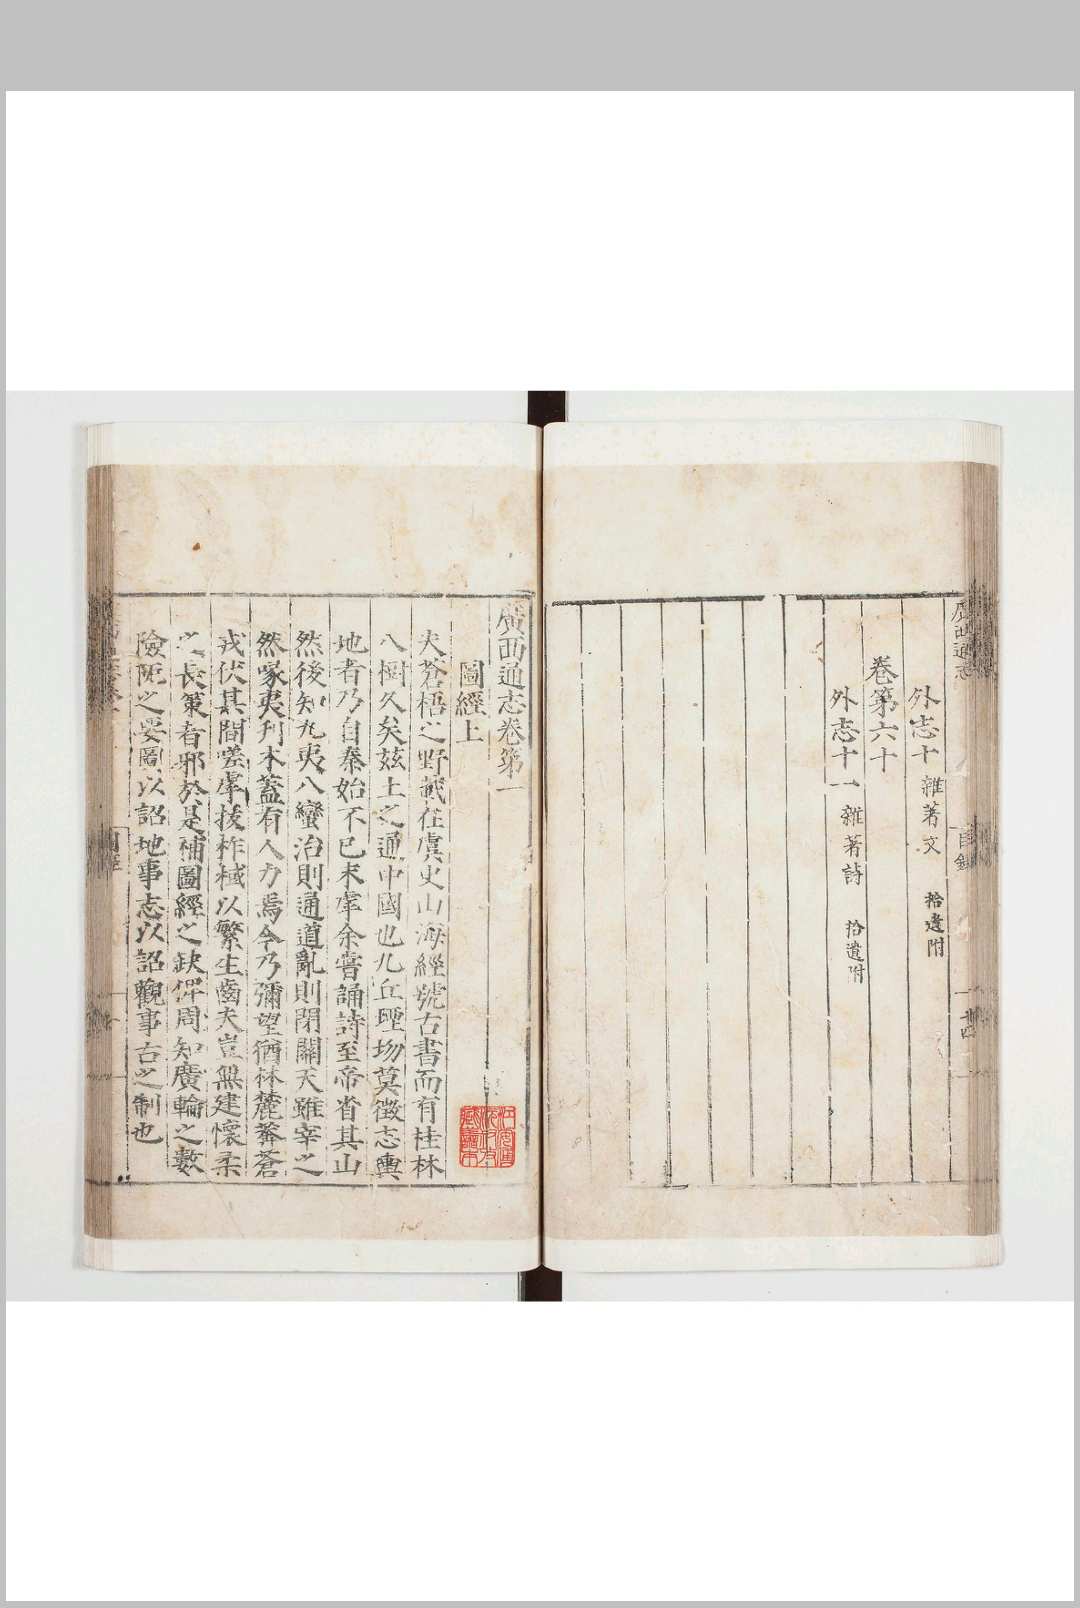 外志十 雜著文 拾遺附
卷第六十
外志十一 雜著詩 拾遺附
廣西通志卷第一
圖經上
夫蒼梧之野載在虞史山海經號古書而有桂林
八樹久矣茲土之通中國也九丘堙物莫徵志輿
地者乃自秦始不已末虖余嘗誦詩至帝省其山
然後知九夷八蠻治則通道亂則閉關天雖宰之
然喙夷刋木蓋有人力焉今乃彌望猶林麓蓊蒼
戎伏其間嗟虖拔柞棫以繁生齒夫豈無建懷柔
之長策者邪於是補圖經之缺俾周知廣輪之數
險阨之要圖以詔地事志以詔觀事古之制也